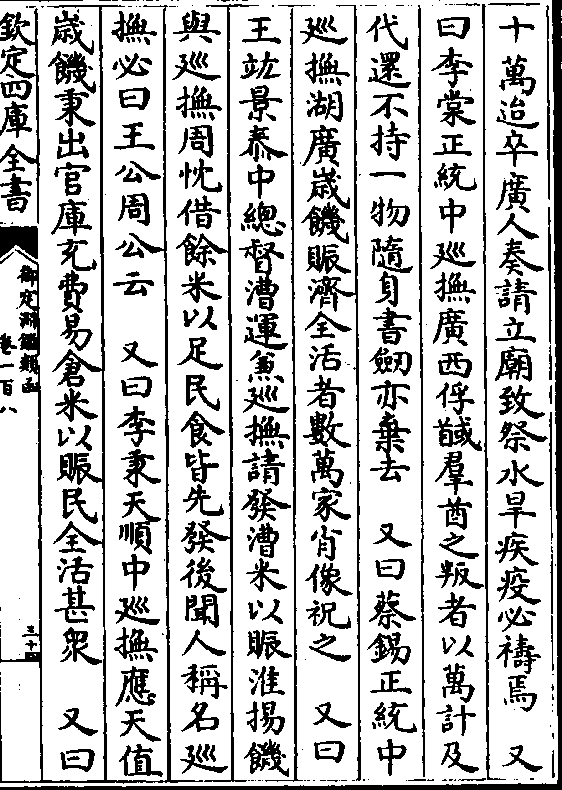 十萬迨卒廣人奏請立廟致祭水旱疾疫必禱焉　又
曰李棠正統中廵撫廣西俘馘羣酋之叛者以萬計及
代還不持一物隨身書劒亦棄去　又曰蔡錫正統中
廵撫湖廣嵗饑賑濟全活者數萬家肖像祝之　又曰
王竑景泰中總督漕運兼廵撫請發漕米以賑淮揚饑
與廵撫周忱借餘米以足民食皆先發後聞人稱名廵
撫必曰王公周公云　又曰李秉天順中廵撫應天值
嵗饑秉出官庫充費易倉米以賑民全活甚衆　又曰
欽定四庫全書
御定淵鑑類函
卷一百八
三十四